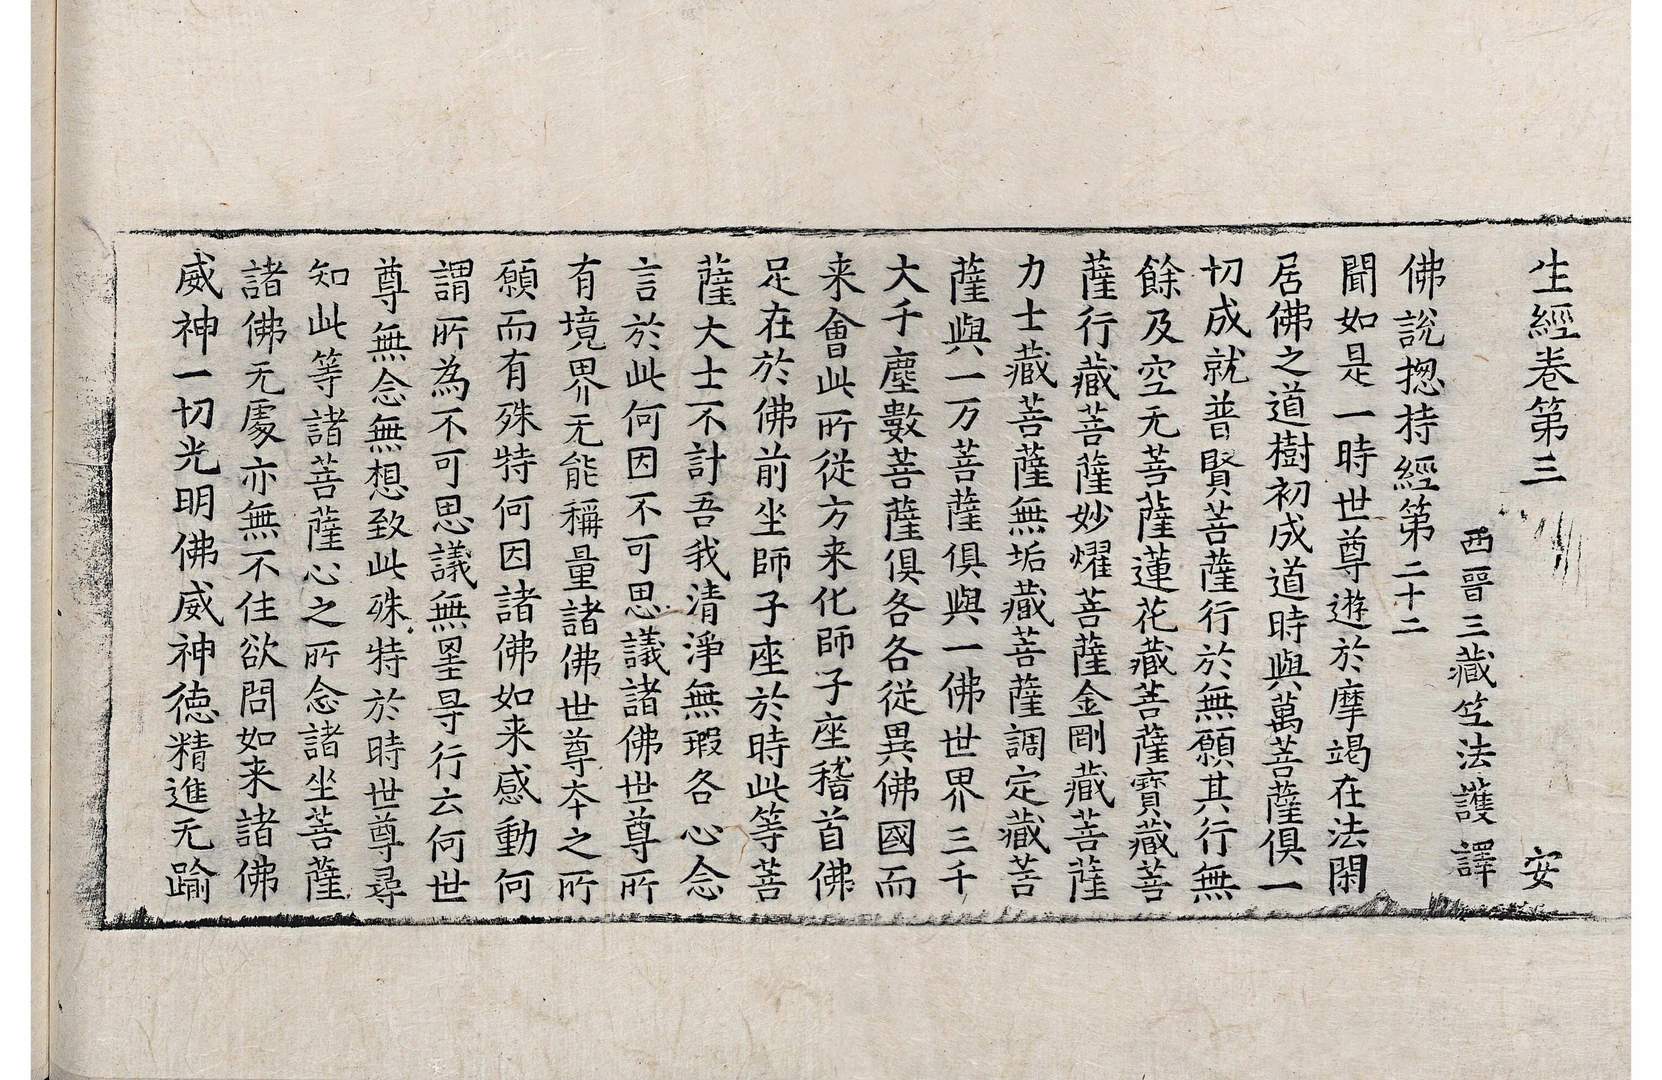 生經卷第三　安
西晉三藏竺法護　譯
佛說揔持經第二十二
聞如是一時世尊遊於摩竭在法閑
居佛之道樹初成道時與萬菩薩俱一
切成就普賢菩薩行於無願其行無
餘及空无菩薩蓮花藏菩薩寶藏菩
薩行藏菩薩妙耀菩薩金剛藏菩薩
力士藏菩薩無垢藏菩薩調定藏菩
薩與一万菩薩俱與一佛世界三千
大千塵數菩薩俱各各從異佛國而
来會此所從方来化師子座稽首佛
足在於佛前坐師子座於時此等菩
薩大士不計吾我清淨無瑕各心念
言於此何因不可思議諸佛世尊所
有境界无能稱量諸佛世尊夲之所
願而有殊特何因諸佛如来感動何
謂所為不可思議無罣㝵行云何世
尊無念無想致此殊特於時世尊尋
知此等諸菩薩心之所念諸坐菩薩
諸佛无處亦無不住欲問如来諸佛
威神一切光明佛威神德精進无踰